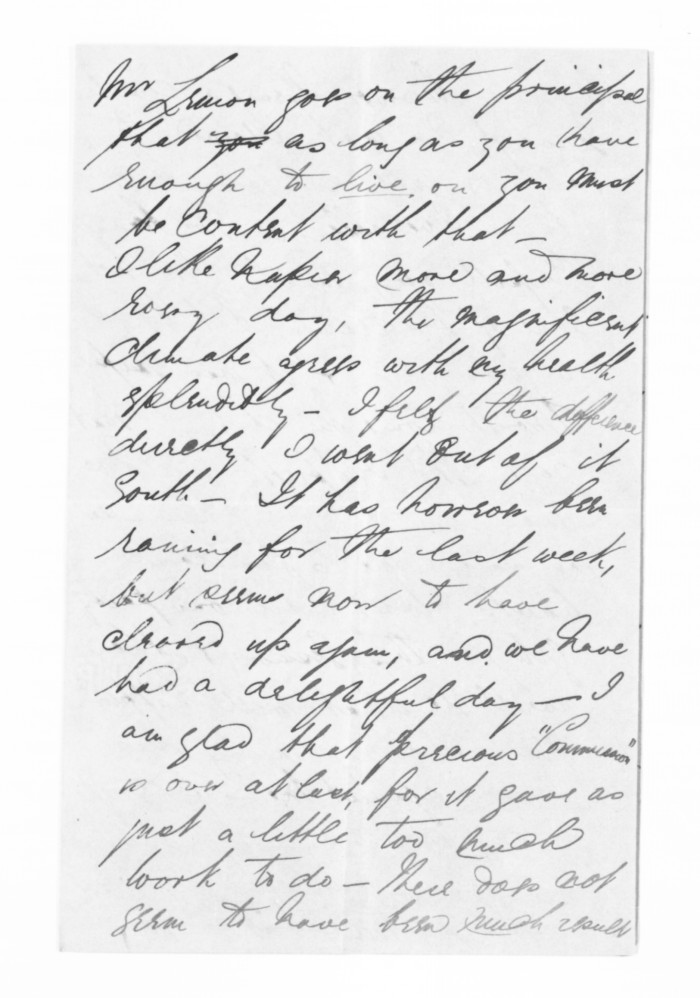 Mr Lemon goes on the principal
that you as long as you have
enough to live on you must
be content with that –
I like Napier more and more
every day, the magnificent
climate agrees with my health
splendidly – I felt the difference
directly I went out of it
South – It has however been
raining for the last week,
but seems now to have
cleared up again, and we have
had a delightful day – I
am glad that precious "Commission"
is over at last, for it gave us
just a little too much
work to do – There does not
seem to have been much result